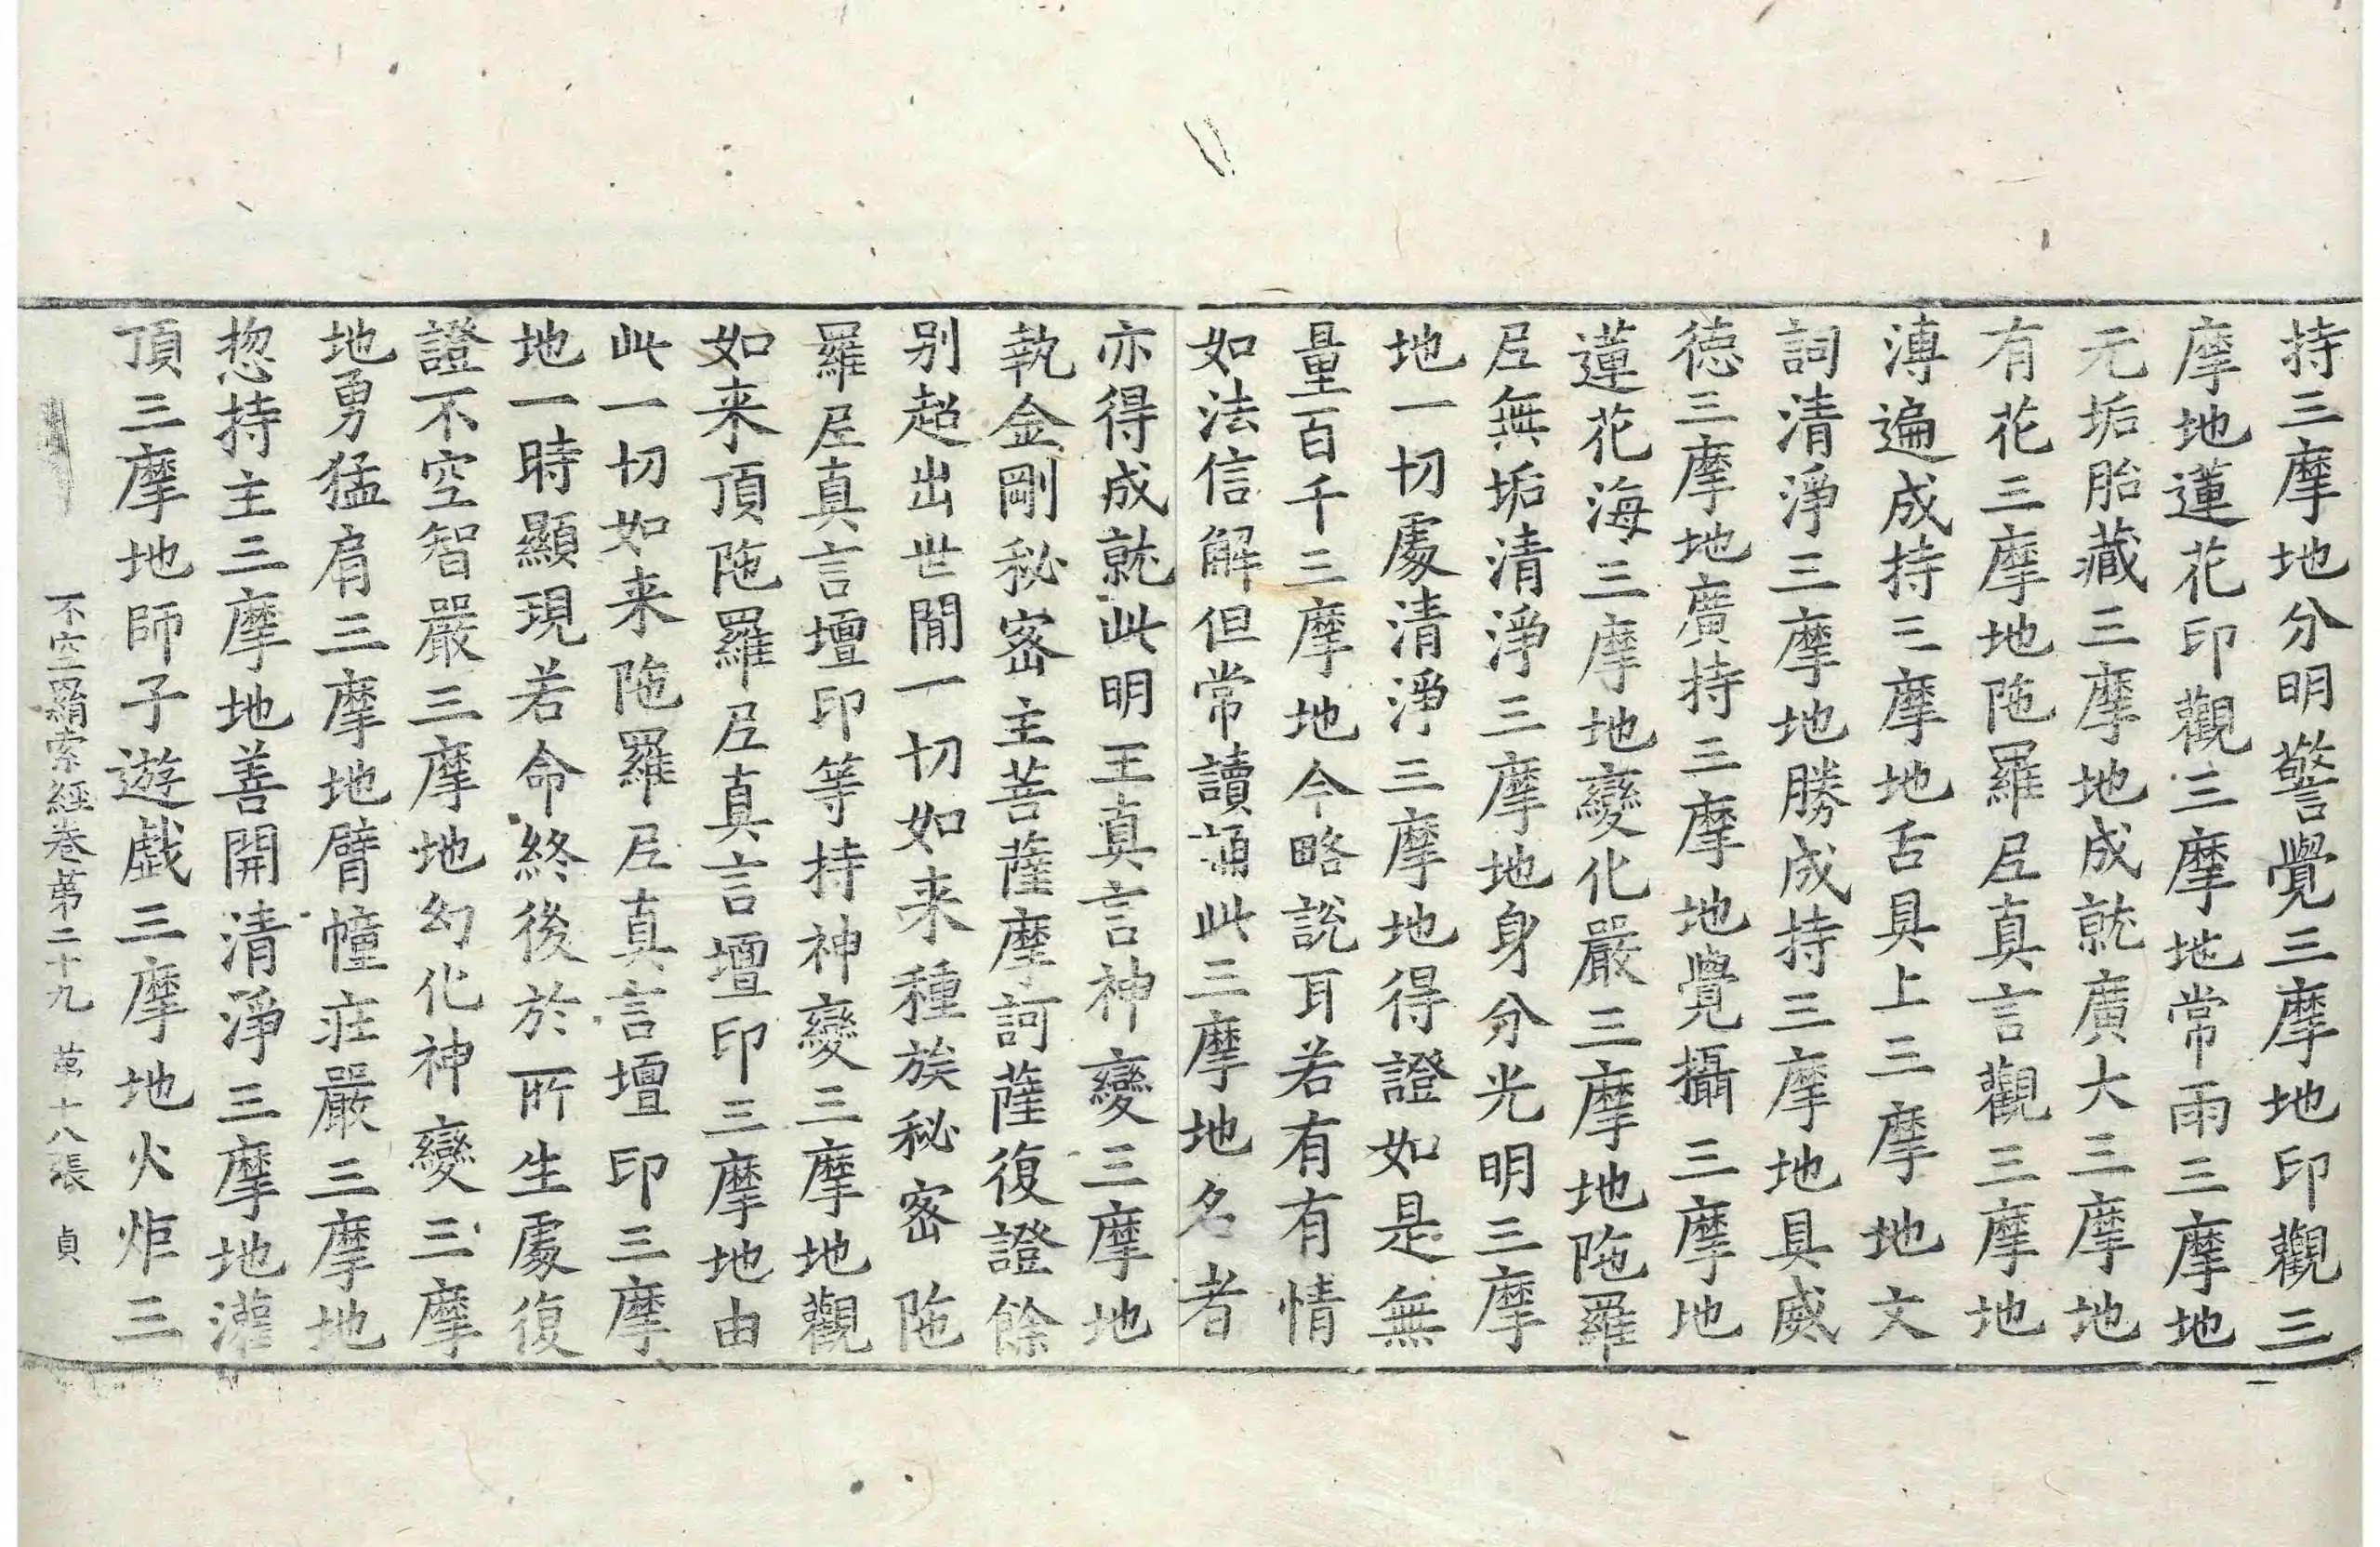 持三摩地分明警覺三摩地印觀三
摩地蓮花印觀三摩地常雨三摩地
元垢胎藏三摩地成就廣大三摩地
有花三摩地陁羅𡰱真言觀三摩地
溥遍成持三摩地舌具上三摩地文
詞清淨三摩地勝成持三摩地具威
德三摩地廣持三摩地覺攝三摩地
蓮花海三摩地變化嚴三摩地陁羅
𡰱無垢清淨三摩地身分光明三摩
地一切處清淨三摩地得證如是無
量百千三摩地今略說耳若有有情
如法信解但常讀誦此三摩地名者
亦得成就此明王真言神變三摩地
執金剛秘密主菩薩摩訶薩復證餘
別超出世閒一切如来種族秘密陁
羅𡰱真言壇印等持神變三摩地觀
如来頂陁羅𡰱真言壇印三摩地由
此一切如来陁羅𡰱真言壇印三摩
地一時顯現若命終後於所生處復
證不空智嚴三摩地幻化神變三摩
地勇猛肩三摩地臂幢莊嚴三摩地
惣持主三摩地善開清淨三摩地灌
頂三摩地師子遊戲三摩地火炬三
不空羂索經卷第二十九 第十八張 貞